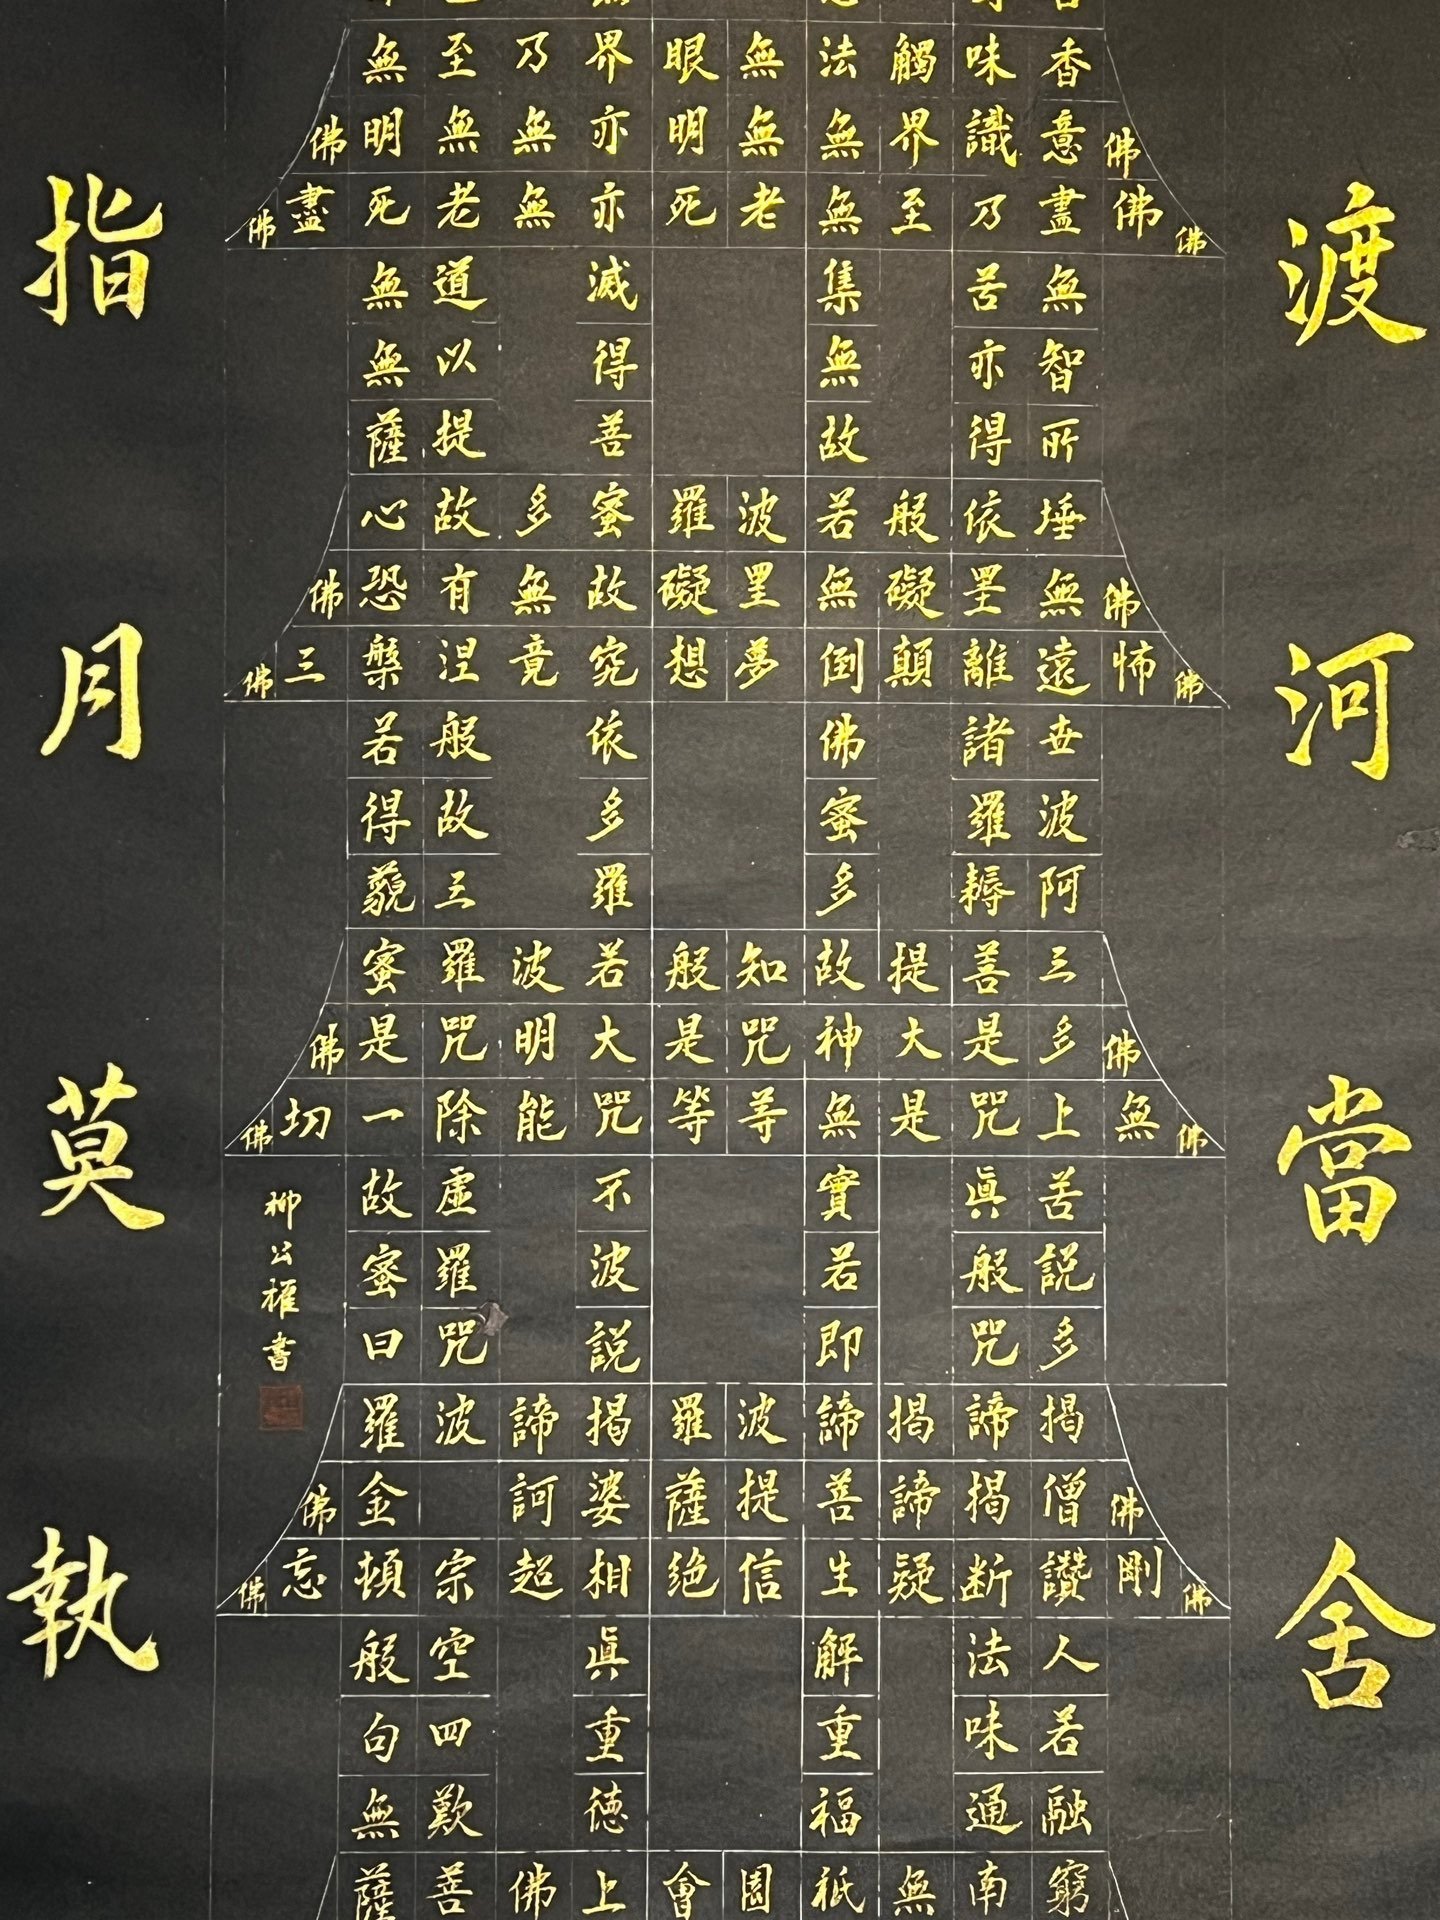 渡河當舍
香味觸法無眼界乃至無
佛意識界無無明亦無無明佛
佛佛盡乃至無老死亦無老死盡佛
無苦集滅道無
智亦無得以無
所得故菩提薩
埵依般若波羅蜜多故心
佛無罣礙無罣礙故無有恐佛
佛怖遠離顛倒夢想究竟涅槃三佛
世諸佛依般若
波羅蜜多故得
阿耨多羅三藐
三菩提故知般若波羅蜜
佛多是大神咒是大明咒是佛
佛無上咒是無等等咒能除一切佛
苦眞實不虛故
説般若波羅蜜
多咒即説咒曰
揭諦揭諦波羅揭諦波羅
佛僧揭諦菩提薩婆訶 金佛
佛剛讚断疑生信絕相超宗頓忘佛
人法解眞空般
若味重重四句
融通福德歎無
窮南無祇園會上佛菩薩
柳公權書
指月莫執